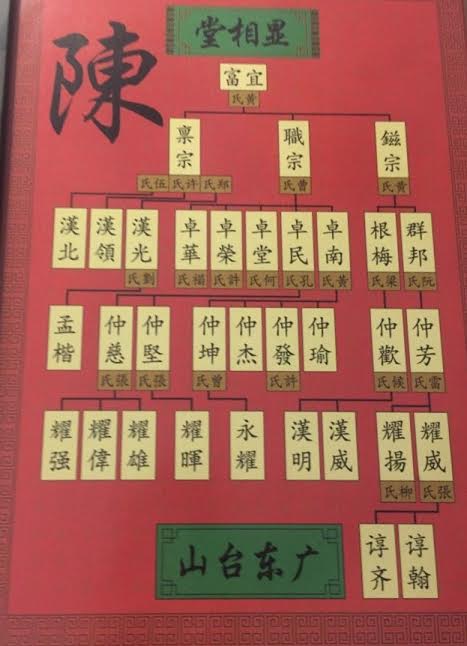 陳
显相堂
宜富
黃氏
鎡宗
職宗
禀宗
黃氏
曹氏
郑氏 许氏 伍氏
群邦
根梅
卓南
卓民
卓堂
卓榮
卓華
漢光
漢領
漢北
阮氏
梁氏
黃氏
孔氏
何氏
許氏
楊氏
劉氏
仲芳
仲歡
仲瑜
仲發
仲杰
仲坤
仲堅
仲慈
孟楷
雷氏
候氏
許氏
曾氏
張氏
張氏
耀威
耀揚
漢威
漢明
永耀
耀暉
耀雄
耀偉
耀强
張氏
柳氏
谆翰
谆齐
广东台山